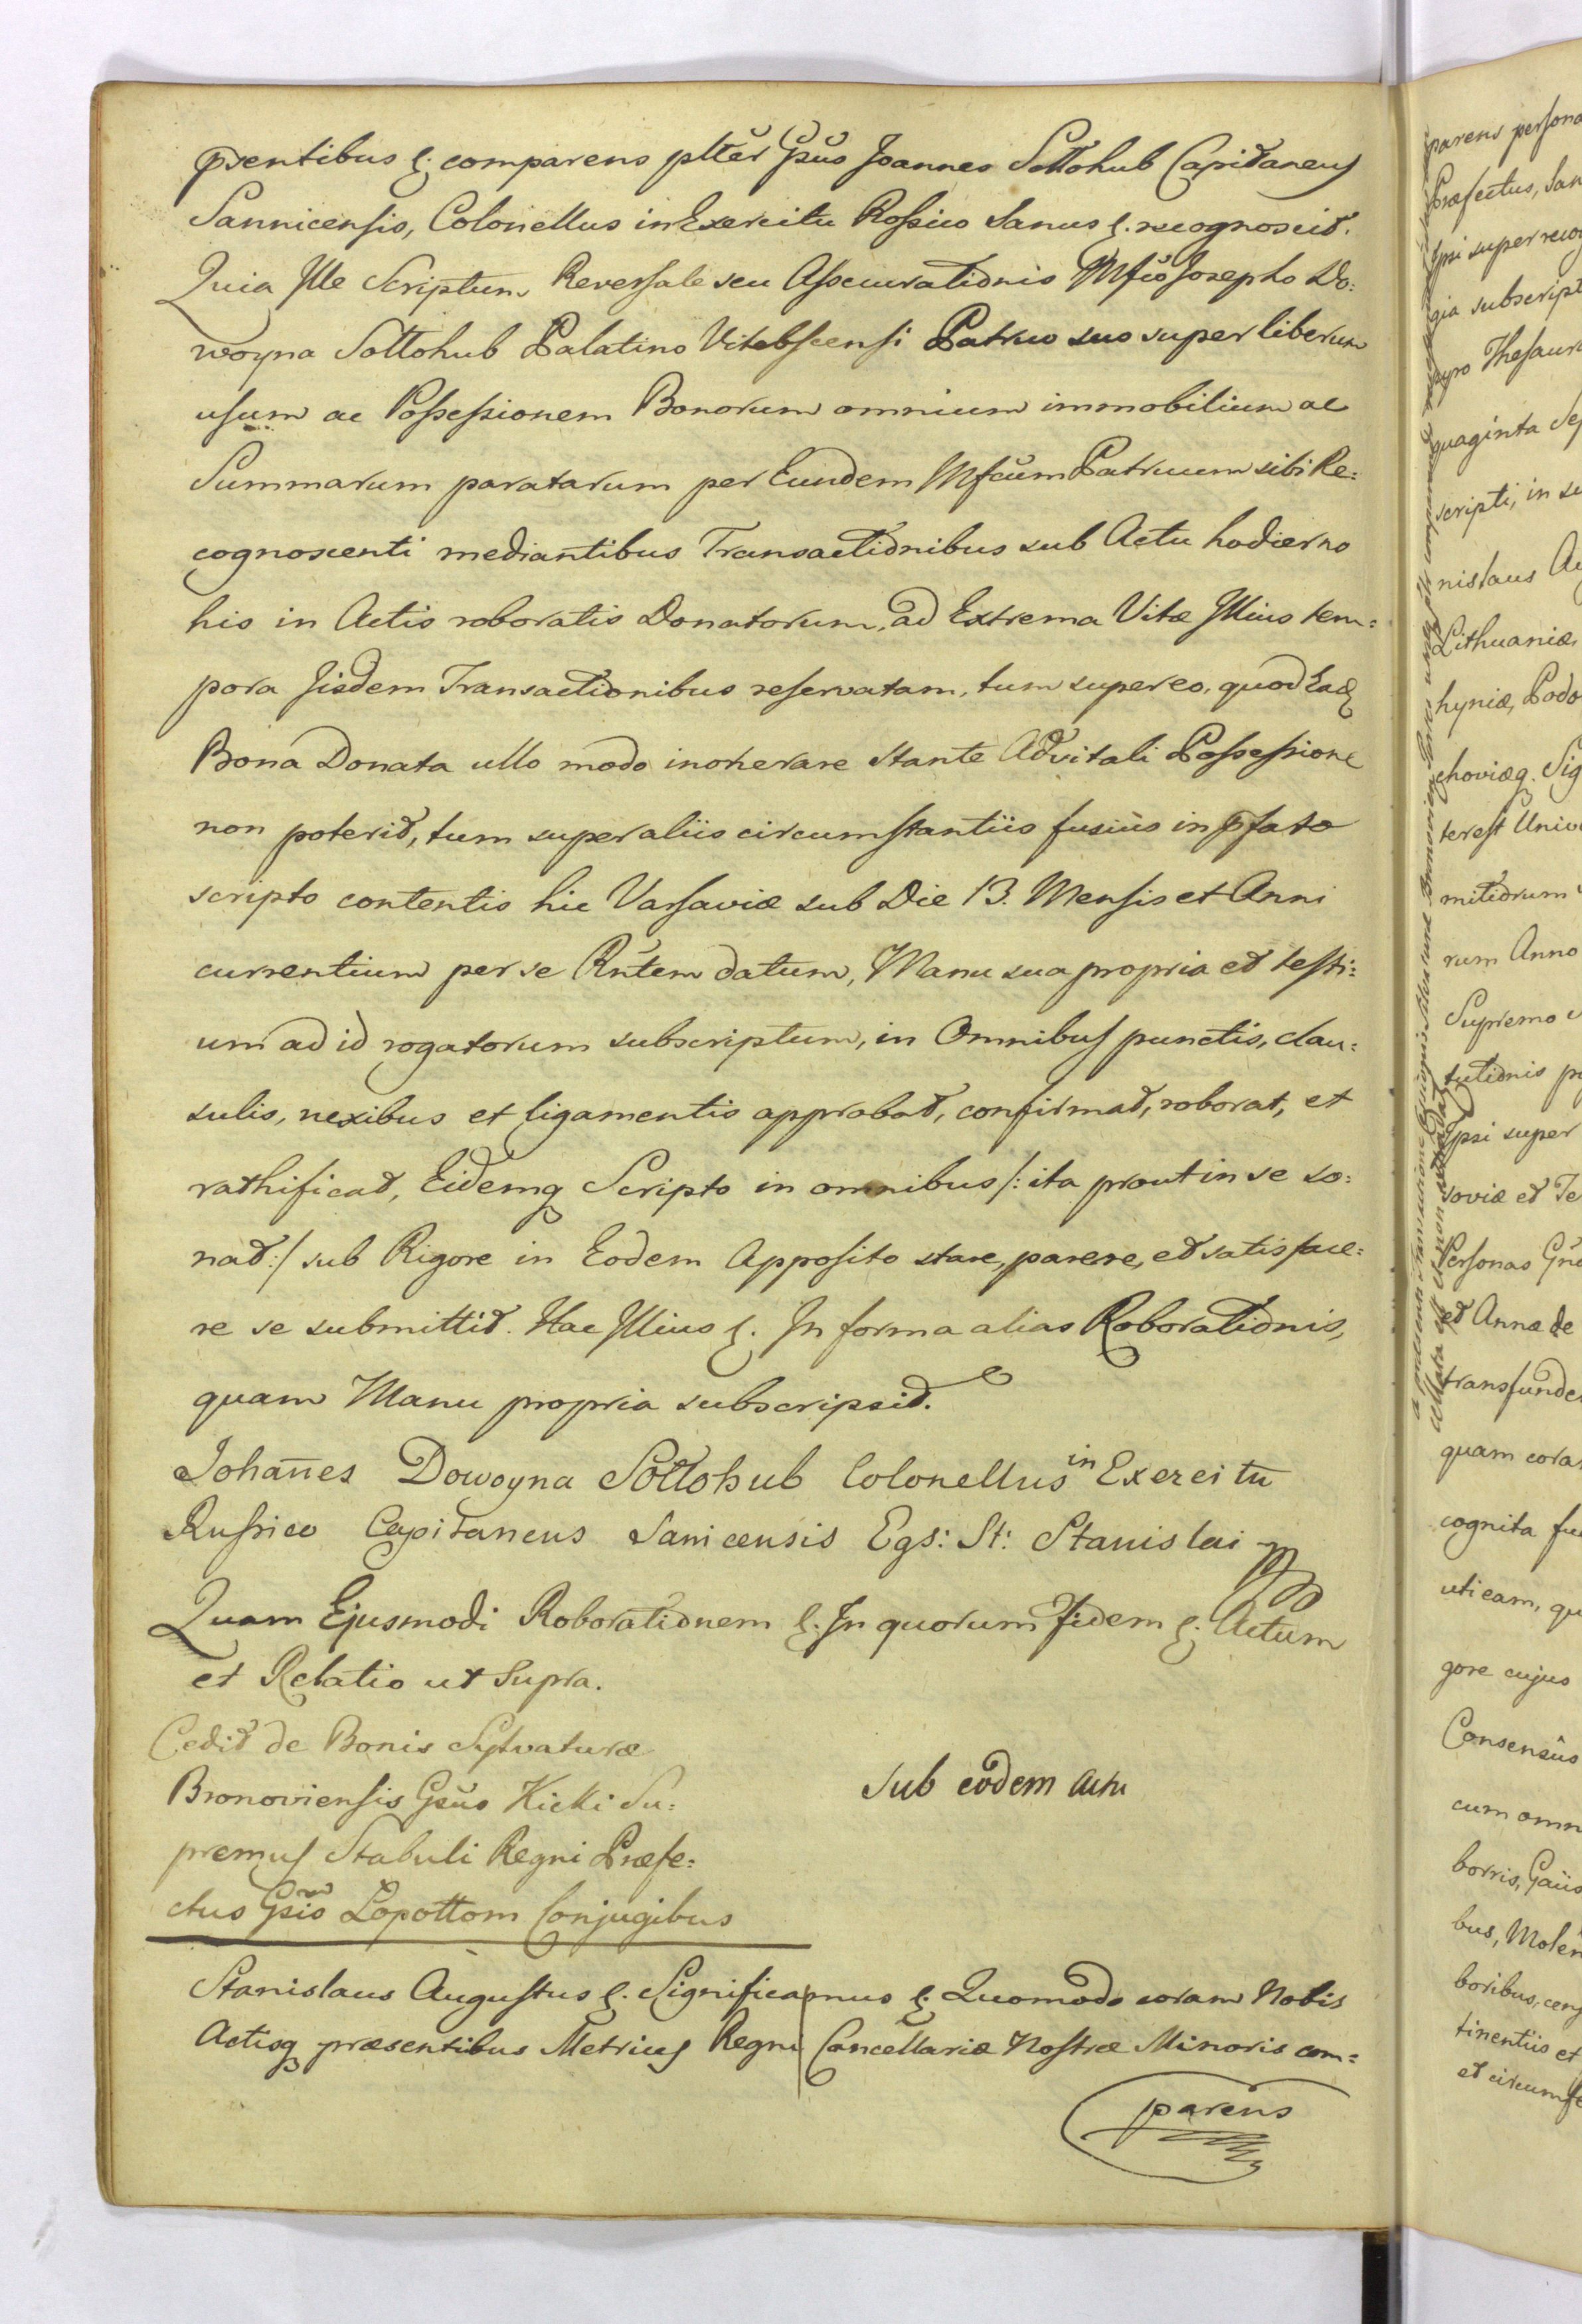 prsentibus &. comparens plter Gsus Joannes Sołłohub Capitaneus
Sannicensis, Colonellus in Exercitu Rossico Sanus &. recognoscit.
Quia Ille Scriptum Reversale seu Assecurationis Mfco Josepho Do:
woyna Sołłohub Palatino Vitebscensi Patruo suo super liberum
usum ac Possessionem Bonorum omnium immobilium ac
Summarum paratarum per Eundem Mfcum Patruum sibi Re:
cognoscenti mediantibus Transactionibus sub Actu hodierno
his in Actis roboratis Donatorum, ad Extrema Vitæ Illius tem:
pora Iisdem Transactionibus reservatam, tum super eo, quod Eadq
Bona Donata ullo modo inonerare stante Advitali Possessione
non poterit, tum super aliis circumstantiis fusiùs in pfato
scripto contentis hic Varsaviæ sub Die 13. Mensis et Anni
currentium per se Rntem datum, Manu sua propria et testi:
um ad id rogatorum subscriptum, in Omnibus punctis, clau:
sulis, nexibus et ligamentis approbat, confirmat, roborat, et
rathificat, Eidemq Scripto in omnibus /: ita prout in se so:
nat :/ sub Rigore in Eodem Apposito stare, parere, et satisface:
re se submittit. Hac Illius &. In forma alias Roborationis,
quam Manu propria subscripsit.
Johañes Dowoyna Sołłohub Colonellus in Exercitu
Russico Capitaneus Sanicensis Eqs: St: Stanislai mp
Quam Ejusmodi Roborationem &. In quorum Fidem &. Actum
et Relatio ut Supra.
Cedit de Bonis Sylvaturæ
Bronoviensis Gsus Kicki Su:
premus Stabuli Regni Præfe:
ctus Gsis Łopottom Conjugibus
Sub eodem Actu
Stanislaus Augustus &. Significamus &. Quomodo coram Nobis
Actisq præsentibus Metrices Regni Cancellariæ Nostræ Minoris com:
parens
parens persona
Præfectus, San
Ipsi super reco
gia subscript
Thesaur
quaginta Sep
scripti, in su
nislaus Au
Lithuaniæ,
hyniæ, Podo
choviæq. Sig
terest Unive
mitiorum
rum Anno
Supremo
tutionis
Ipsi super
soviæ et Te
Personas
et Annæ de
transfunde
quam cora
cognita fu
uti eam, qu
gore cujus
Consensûs
cum omn
borris, Gaiis
bus, Molen
boribus, cen
tinentiis et
et circumfe